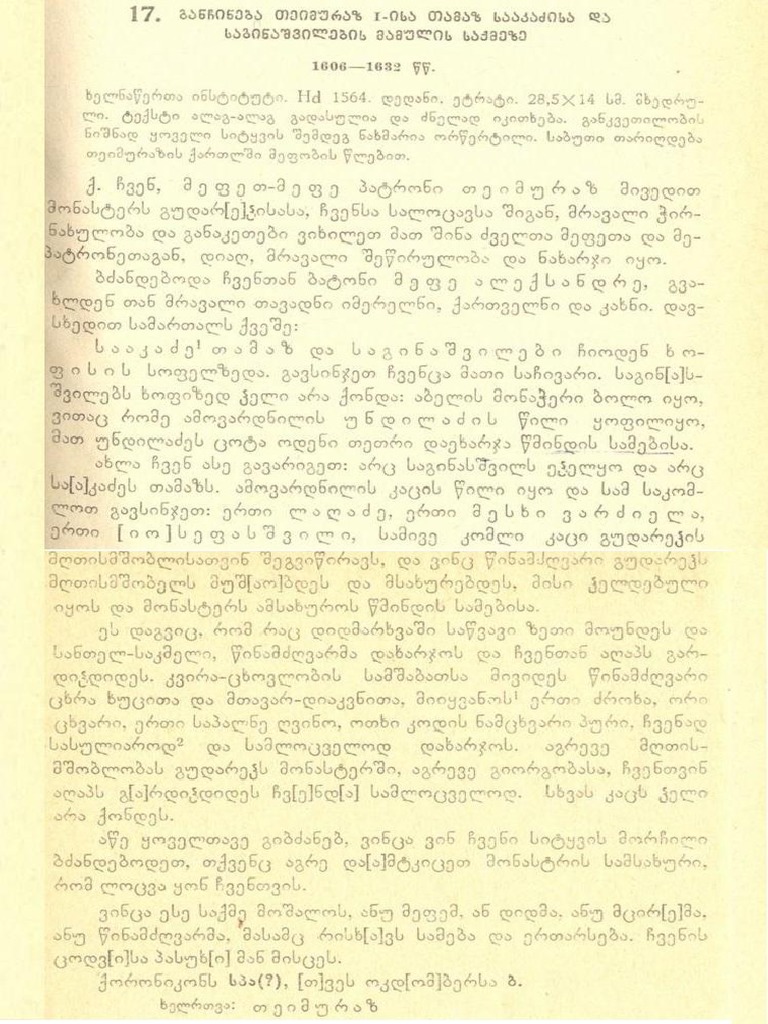 17. განჩინება თეიმურაზ I-ისა თამაზ სააკაძისა და
საგინაშვილების მამულის საქმეზე
1606—1632 წწ.
ხელნაწერთა ინსტიტუტი. Hd 1564. დედანი. ეტრატი. 28,5×14 სმ. მხედრუ-
ლი. ტექსტი ალაგ-ალაგ გადასულია და ძნელად იკითხება. განკვეთილობის
ნიშნად ყოველი სიტყვის შემდეგ ნახმარია ორწერტილი. საბუთი თარიღდება
თეიმურაზის ქართლში მეფობის წლებით.
ქ. ჩვენ, მეფეთ-მეფე პატრონი თეიმურაზ მივედით
მონასტერს გუდარ[ე]ჴისასა, ჩვენსა სალოცავსა შიგან, მრავალი ჭირ-
ნახულობა და განაკეთები ვიხილეთ მათ შინა ძველთა მეფეთა და მე-
პატრონეთაგან, დიაღ, მრავალი შეწირულობა და ნახარჯი იყო.
ბძანდებოდა ჩვენთან ბატონი მეფე ალექსანდრე, გვა-
ხლდენ თან მრავალი თავადნი იმერელნი, ქართველნი და კახნი. დავ-
სხედით სამართალს ქვეშე:
სააკაძე¹ თამაზ და საგინაშვილები ჩიოდენ ხო-
ფისის სოფელზედა. გავსინჯეთ ჩვენცა მათი საჩივარი. საგინ[ა]ს-
შვილებს ხოფიზედ ჴელი არა ქონდა: აბელის მონაჭერი ბოლო იყო,
ვითაც რომე ამოვარდნილის უნდილაძის წილი ყოფილიყო,
მათ უნდილაძეს ცოტა ოდენი თეთრი დაეხარჯა წმინდის სამებისა.
ახლა ჩვენ ასე გავარიგეთ: არც საგინასშვილს ეჴელყო და არც
სა[ა]კაძეს თამაზს. ამოვარდნილის კაცის წილი იყო და სამ საკომ-
ლოთ გავსინჯეთ: ერთი ლაღაძე, ერთი მესხი ვარძიელა,
ერთი [იო]სეფასშვილი, სამივე კომლი კაცი გუდარეჴის
მღთისმშობლისათვინ შეგვიწირავს, და ვინც წინამძღვარი გუდარეჴს
მღთისმშობელს მუშ[აო]ბდეს და მსახურებდეს, მისი ჴელდებული
იყოს და მონასტერს ამსახუროს წმინდის სამებისა.
ეს დაგვიც, რომ რაც დიდმარხვაში საწვავი ზეთი მოუნდეს და
სანთელ-საკმელი, წინამძღვარმა დახარჯოს და ჩვენთან აღაპს გარ-
დიჴდიდეს. კვირა-ცხოვლობის სამშაბათსა მივიდეს წინამძღვარი
ცხრა ხუცითა და მთავარ-დიაკვნითა, მიიყვანოს¹ ერთი ძროხა, ორი
ცხვარი, ერთი საპალნე ღვინო, ოთხი კოდის ნამცხვარი პური, ჩვენად
სასულიაროდ² და სამლოცველოდ დახარჯოს. აგრევე მღთის-
მშობლობას გუდარეჴს მონასტერში, აგრევე გიორგობასა, ჩვენთვინ
აღაპს გ[ა]რდიჴდიდეს ჩვ[ე]ნდ[ა] სამლოცველოდ. სხვას კაცს ჴელი
არა ქონდეს.
აწე ყოველთავე გიბძანებ, ვინცა ვინ ჩვენი სიტყვის მორჩილი
ბძანდებოდეთ, თქვენც აგრე და[ა]მტკიცეთ მონასტრის სამსახური,
რომ ლოცვა ყონ ჩვენთვის.
ვინცა ესე საქმე მოშალოს, ანუ მეფემ, ან დიდმა, ანუ მცირ[ე]მა,
ანუ წინამძღვარმა, მასამც რისხ[ა]ვს სამება და ერთარსება. ჩვენის
ცოდვ[ი]სა პასუხ[ი] მან მისცეს.
ქორონიკონს სპა(?), [თ]ვეს ოკდ[ომ]ბერსა ბ.
ხელრთვა: თეიმურაზ